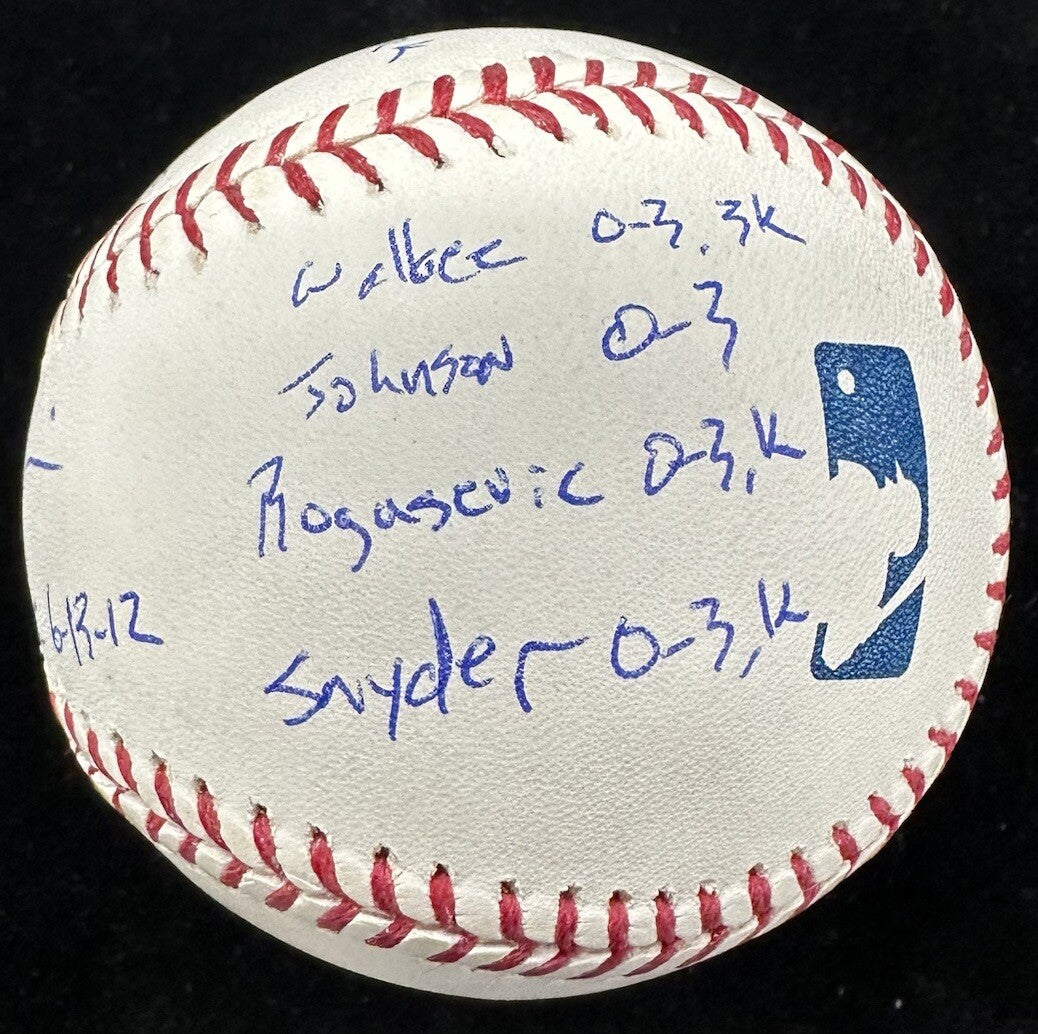 Wallace 0-3, 3K
Johnson 0-3
Bogusevic 0-3, K
Snyder 0-3, K
6-13-12